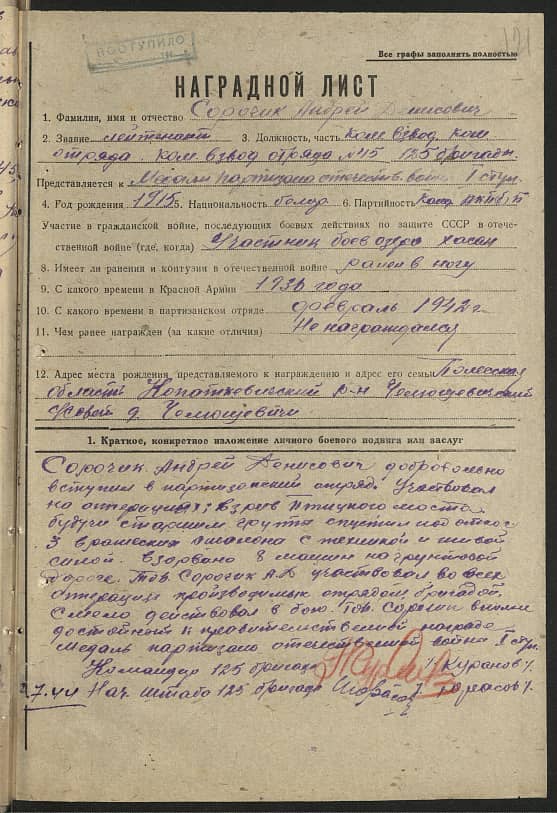 121
ПОСТУПИЛО
Все графы заполнять полностью
НАГРАДНОЙ ЛИСТ
1. Фамилия, имя и отчество Сорочик Андрей Денисович
2. Звание лейтенант 3. Должность, часть ком. взвод. ком
отряда. ком. взвод отряда №45 125 бригады.
Представляется к Медали партизана отечеств. войны I степ.
4. Год рождения 1915 5. Национальность белор 6. Партийность Канд ВКП(б)
Участие в гражданской войне, последующих боевых действиях по защите СССР в отече-
ственной войне (где, когда) Участник боев озера Хасан
8. Имеет ли ранения и контузии в отечественной войне ранен в ногу
9. С какого времени в Красной Армии 1936 года
10. С какого времени в партизанском отряде февраль 1942 г.
11. Чем ранее награжден (за какие отличия) Не награждался
12. Адрес места рождения, представляемого к награждению и адрес его семьи Полесская
область Копаткевичский р-н
д.
1. Краткое, конкретное изложение личного боевого подвига или заслуг
Сорочик Андрей Денисович добровольно
вступил в партизанский отряд. Участвовал
на операциях: взрыв Птицкого моста
будучи старшим группы спустил под откос
3 вражеских эшелона с техникой и живой
силой. Взорвано 8 машин на грунтовой
дороге. Тов. Сорочик А.Д участвовал во всех
операциях производимых отрядом, бригадой.
Смело действовал в бою. Тов. Сорочик вполне
достойный к правительственной награде
медаль партизана отечественной война I степ.
Командир 125 бригады /Куранов/.
7.44 Нач. штаба 125 бригады /Тарасов/.